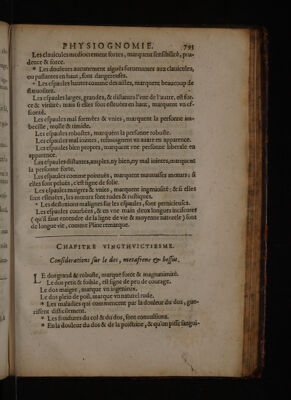 PHYSIOGNOMIE. 795
Les clauicules mediocrement fortes, marquent sensibilité, pru-
dence & force.
* Les douleurs aucunement aiguës suruenantes aux clauicules,
ou passantes en haut, sont dangereuses.
* Les espaules hautes comme des ailles, marquent beaucoup de
Les espaules larges, grandes, & distantes l'vne de l'autre, est for-
ce & virilité: mais si elles sont esleuées en haut, marquent vn ef-
fronté.
Les espaules mal formées & vnies, marquent la personne im-
becille, molle & timide.
Les espaules robustes, marquent la personne robuste.
Les espaules mal iointes, tesmoignent vn auare en apparence.
Les espaules bien propres, marquent vne personne liberale en
apparence.
Les espaules distantes, amples, ny bien, ny mal iointes, marquent
la personne forte.
Les espaules comme pointuës, marquent mauuaises mœurs; si
elles sont peluës, c'est signe de folie.
Les espaules maigres & vnies, marquent ingeniosité; & si elles
sont esleuées, les mœurs sont rudes & rustiques.
* Les distentions malignes sur les espaules, sont pernicieuses.
Les espaules courbées, & en vne main deux longues incisures
(qu'il faut entendre de la ligne de vie & moyenne naturelle) sont
de longue vie, comme Pline remarque.
CHAPITRE VINGTHVICTIESME.
Considerations sur le dos, metafrene & bossus.
LE dos grand & robuste, marque force & magnanimité.
Le dos petit & foible, est signe de peu de courage.
Le dos maigre, marque vn ingenieux.
Le dos plein de poil, marque vn naturel rude.
* Les maladies qui commencent par la douleur du dos, gue-
rissent difficilement.
* Les froidures du col & du dos, sont conuulsions.
* En la douleur du dos & de la poictrine, & qu'on pisse sangui-